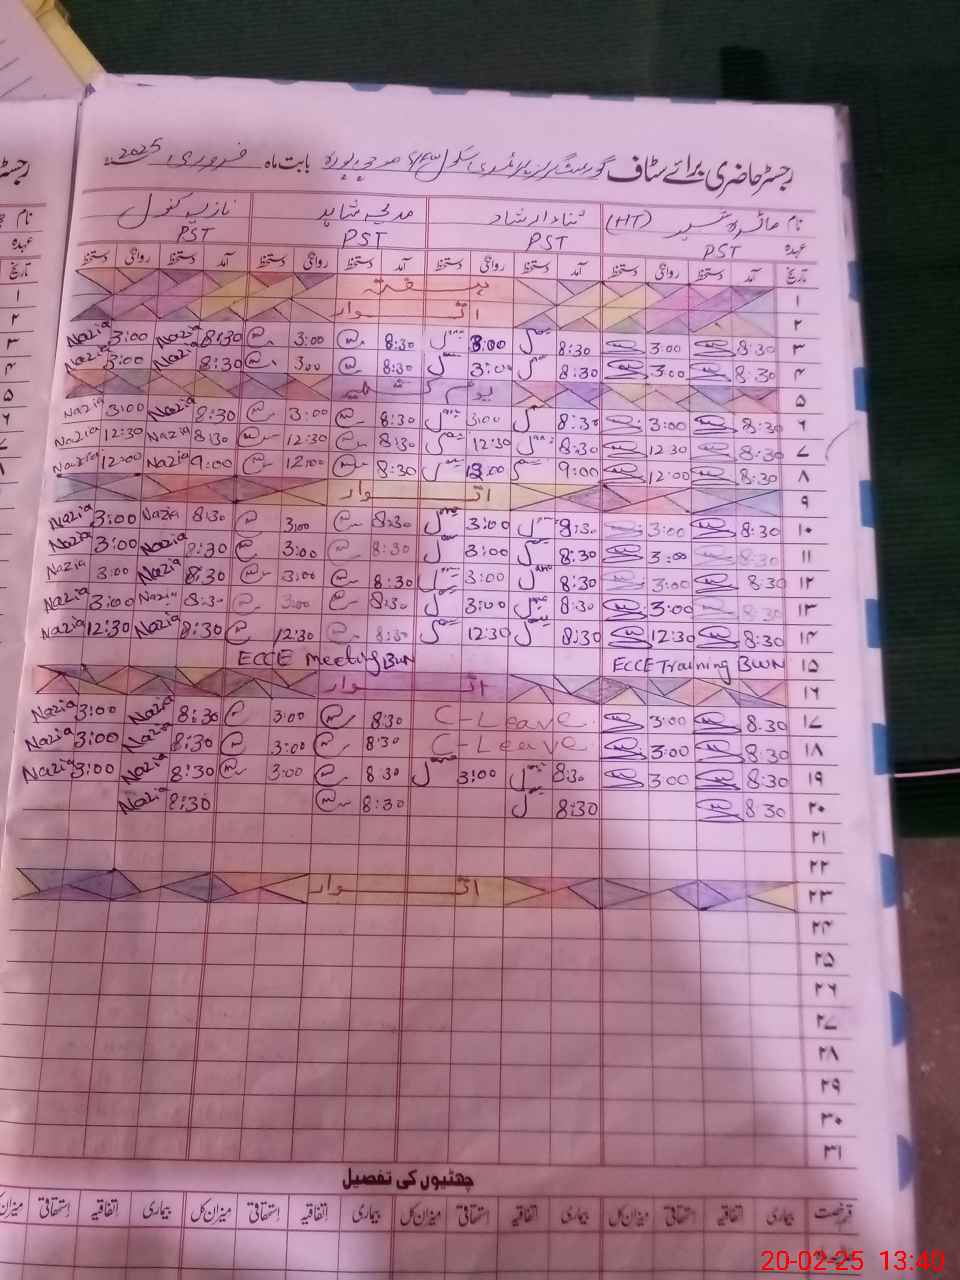 رجسٹر حاضری برائے سٹاف گورنمنٹ گرلز پرائمری سکول بابت ماہ فروری 2025
نام (HT) ثناء ارشاد مدیحہ شاہد نازیہ کنول
عہدہ PST PST PST PST
تاریخ آمد دستخط روانگی دستخط آمد دستخط روانگی دستخط آمد دستخط روانگی دستخط آمد دستخط روانگی دستخط
۱ ہفتہ
۲ اتوار
۳ 8:30 3:00 8:30 3:00 8:30 3:00 8:30 Nazia 3:00 Nazia
۴ 8:30 3:00 8:30 3:00 8:30 3:00 8:30 Nazia 3:00 Nazia
۵ یوم کشمیر
۶ 8:30 3:00 8:30 3:00 8:30 3:00 8:30 Nazia 3:00 Nazia
۷ 8:30 12:30 8:30 12:30 8:30 12:30 8:30 Nazia 12:30 Nazia
۸ 8:30 12:00 9:00 12:00 8:30 12:00 9:00 Nazia 12:00 Nazia
۹ اتوار
۱۰ 8:30 3:00 8:30 3:00 8:30 3:00 8:30 Nazia 3:00 Nazia
۱۱ 8:30 3:00 8:30 3:00 8:30 3:00 8:30 Nazia 3:00 Nazia
۱۲ 8:30 3:00 8:30 3:00 8:30 3:00 8:30 Nazia 3:00 Nazia
۱۳ 8:30 3:00 8:30 3:00 8:30 3:00 8:30 Nazia 3:00 Nazia
۱۴ 8:30 12:30 8:30 12:30 8:30 12:30 8:30 Nazia 12:30 Nazia
۱۵ ECCE Training BWN ECCE meeting BWN
۱۶ اتوار
۱۷ 8:30 3:00 C-Leave 8:30 3:00 8:30 Nazia 3:00 Nazia
۱۸ 8:30 3:00 C-Leave 8:30 3:00 8:30 Nazia 3:00 Nazia
۱۹ 8:30 3:00 8:30 3:00 8:30 3:00 8:30 Nazia 3:00 Nazia
۲۰ 8:30 8:30 8:30 8:30 Nazia
۲۱
۲۲
۲۳ اتوار
۲۴
۲۵
۲۶
۲۷
۲۸
۲۹
۳۰
۳۱
چھٹیوں کی تفصیل
قسم رخصت بیماری اتفاقیہ استحقاقی میزان کل بیماری اتفاقیہ استحقاقی میزان کل بیماری اتفاقیہ استحقاقی میزان کل بیماری اتفاقیہ استحقاقی میزان کل
20-02-25 13:40